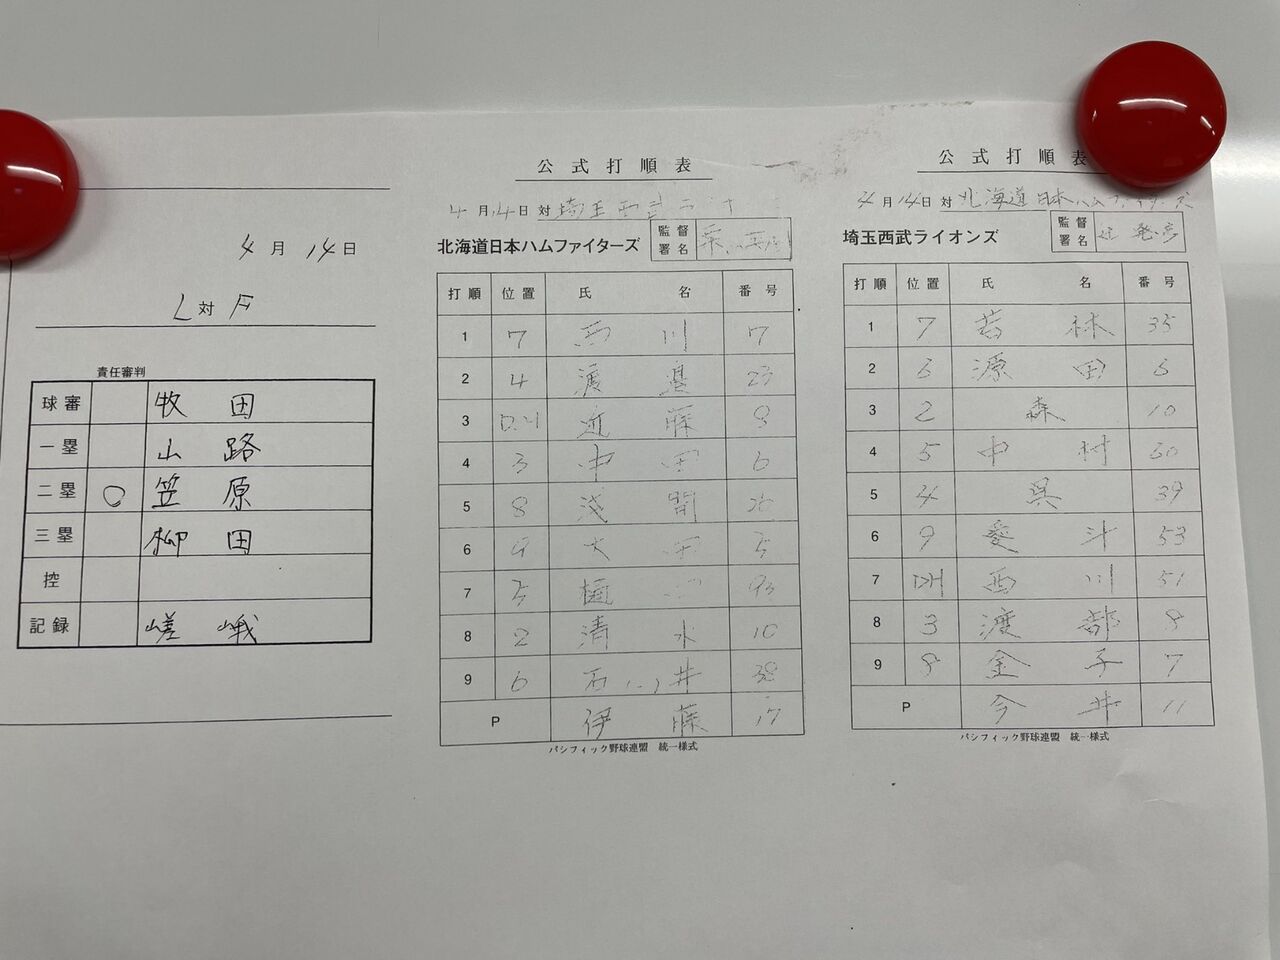 4月14日
L対F
責任審判
球審 牧田
一塁 山路
二塁 ○ 笠原
三塁 柳田
控
記録 嵯峨
公式打順表
4月14日 対 埼玉西武
北海道日本ハムファイターズ 監督署名
打順 位置 氏名 番号
1 7 西川 7
2 4 渡邉 23
3 D.H 近藤 8
4 3 中田 6
5 8 淺間 26
6 9 大田 5
7 5 樋口 93
8 2 清水 10
9 6 石井 38
P 伊藤 17
パシフィック野球連盟 統一様式
公式打順表
4月14日 対 北海道日本ハムファイターズ
埼玉西武ライオンズ 監督署名 辻発彦
打順 位置 氏名 番号
1 7 若林 35
2 6 源田 6
3 2 森 10
4 5 中村 60
5 4 呉 39
6 9 愛斗 53
7 DH 西川 51
8 3 渡部 8
9 8 金子 7
P 今井 11
パシフィック野球連盟 統一様式